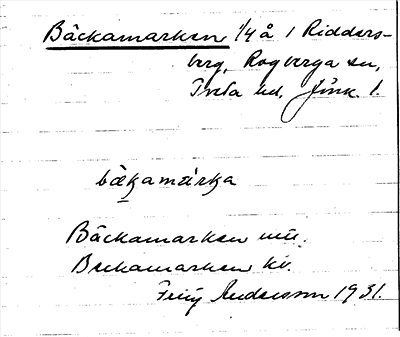 Bäckamarken 1/4 å 1 Ridders-
berg, Rogberga sn,
Tveta hd, Jönk. l.
bäkamarka
Bäckamarken
Beckamarken kv.
Andersson 1931.